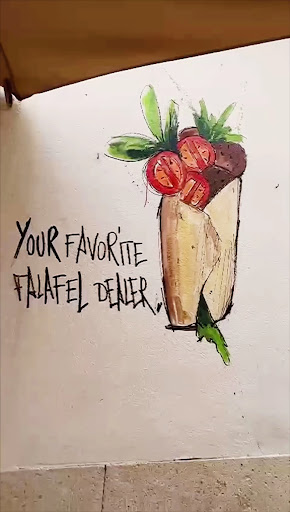 YOUR FAVORITE
FALAFEL DEALER.